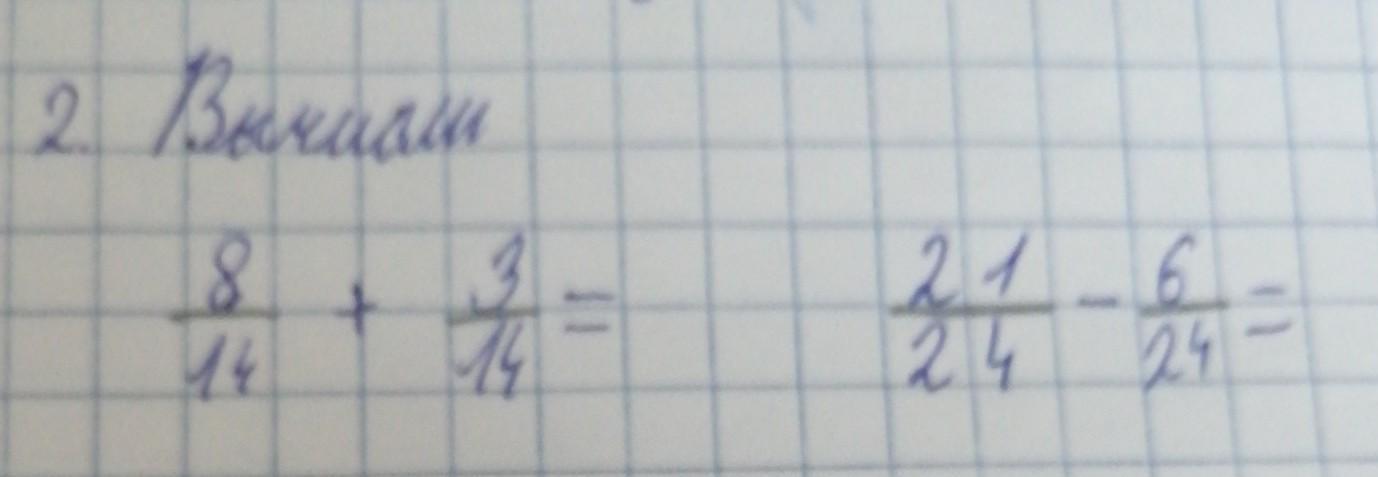 2. Вычисли
8/14 + 3/14 = 21/24 - 6/24 =